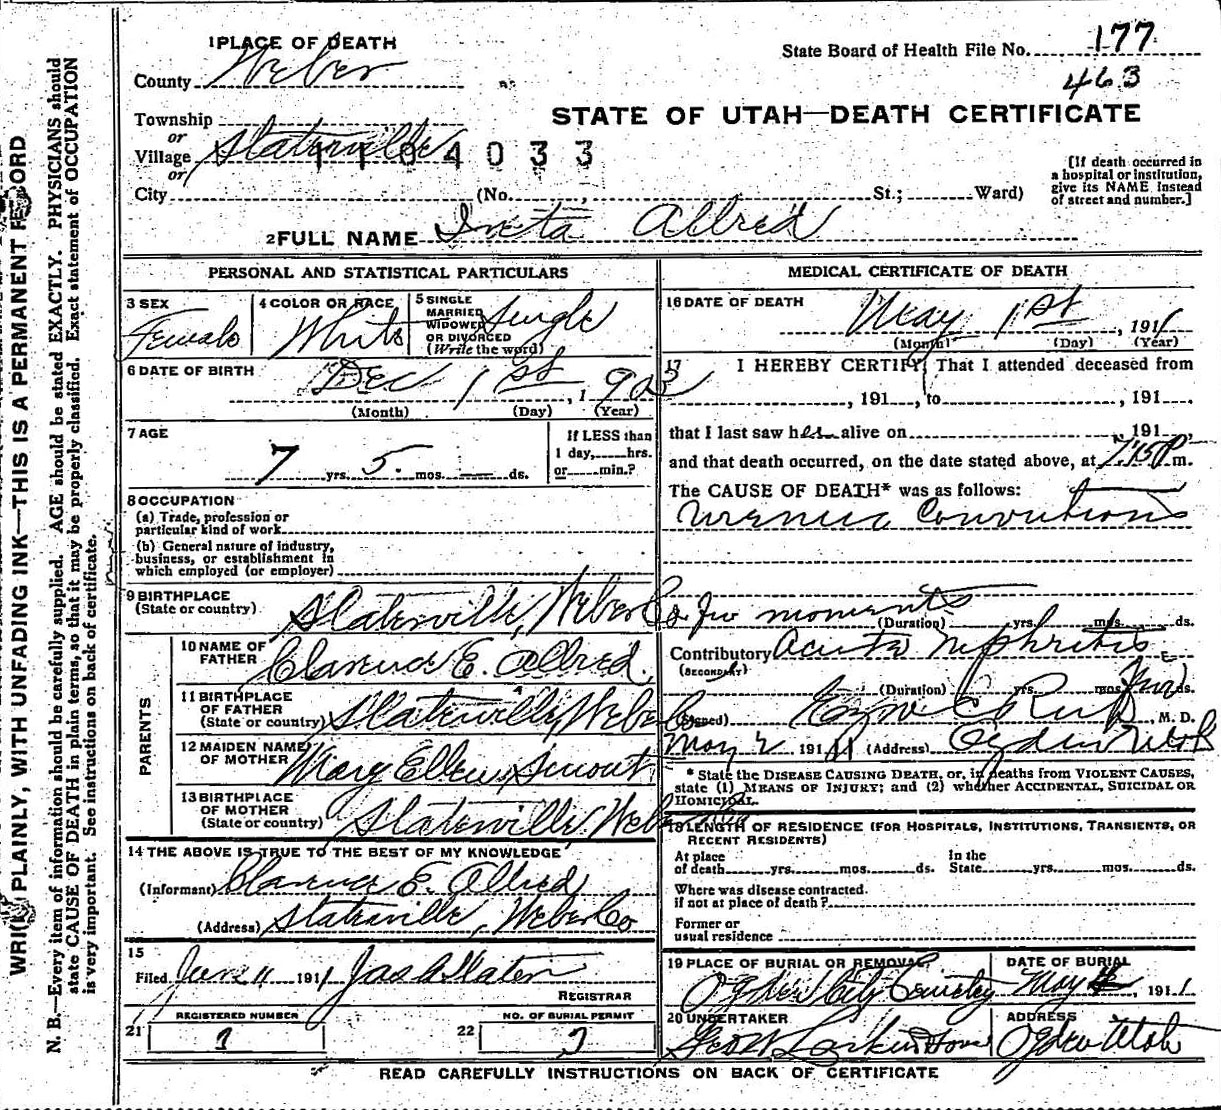 WRITE PLAINLY, WITH UNFADING INK—THIS IS A PERMANENT RECORD
N. B.—Every item of information should be carefully supplied. AGE should be stated EXACTLY. PHYSICIANS should
state CAUSE OF DEATH in plain terms, so that it may be properly classified. Exact statement of OCCUPATION
is very important. See instructions on back of certificate.
1 PLACE OF DEATH
County Weber
State Board of Health File No. 177
463
STATE OF UTAH—DEATH CERTIFICATE
Township
or
Village Slaterville
1104033
or
City (No. , St.; Ward)
[If death occurred in
a hospital or institution,
give its NAME instead
of street and number.]
2 FULL NAME Allred
PERSONAL AND STATISTICAL PARTICULARS
3 SEX
Female
4 COLOR OR RACE
White
5 SINGLE
MARRIED
WIDOWED
OR DIVORCED
(Write the word)
Single
6 DATE OF BIRTH
Dec 1st, 1903
(Month) (Day) (Year)
7 AGE
7 yrs. 5 mos. — ds.
If LESS than
1 day, hrs.
or min.?
8 OCCUPATION
(a) Trade, profession or
particular kind of work
(b) General nature of industry,
business, or establishment in
which employed (or employer)
9 BIRTHPLACE
(State or country) Slaterville, Weber Co
PARENTS
10 NAME OF
FATHER Clarence E. Allred
11 BIRTHPLACE
OF FATHER
(State or country) Slaterville, Weber Co
12 MAIDEN NAME
OF MOTHER Mary Ellen Smout
13 BIRTHPLACE
OF MOTHER
(State or country) Slaterville, Weber Co
14 THE ABOVE IS TRUE TO THE BEST OF MY KNOWLEDGE
(Informant) Clarence E. Allred
(Address) Slaterville, Weber Co
15
Filed Jun 11 1911 Jas A Slater
REGISTRAR
REGISTERED NUMBER
21
NO. OF BURIAL PERMIT
22
MEDICAL CERTIFICATE OF DEATH
16 DATE OF DEATH
May 1st, 1911
(Month) (Day) (Year)
17 I HEREBY CERTIFY, That I attended deceased from
, 191 , to , 191
that I last saw her alive on 191 ,
and that death occurred, on the date stated above, at 7:15 P m.
The CAUSE OF DEATH* was as follows:
Uremic Convulsions
few moments
(Duration) yrs. mos. ds.
Contributory Acute Nephritis
(SECONDARY)
(Duration) yrs. mos. few ds.
(Signed) Ezra C Rich, M. D.
May 2 1911 (Address) Ogden Utah
* State the DISEASE CAUSING DEATH, or, in deaths from VIOLENT CAUSES,
state (1) MEANS OF INJURY; and (2) whether ACCIDENTAL, SUICIDAL OR
HOMICIDAL.
18 LENGTH OF RESIDENCE (FOR HOSPITALS, INSTITUTIONS, TRANSIENTS, OR
RECENT RESIDENTS)
At place
of death yrs. mos. ds.
In the
State yrs. mos. ds.
Where was disease contracted.
if not at place of death?
Former or
usual residence
19 PLACE OF BURIAL OR REMOVAL
Ogden City Cemetery
DATE OF BURIAL
May 4, 1911
20 UNDERTAKER
Geo W Larkin & Sons
ADDRESS
Ogden Utah
READ CAREFULLY INSTRUCTIONS ON BACK OF CERTIFICATE